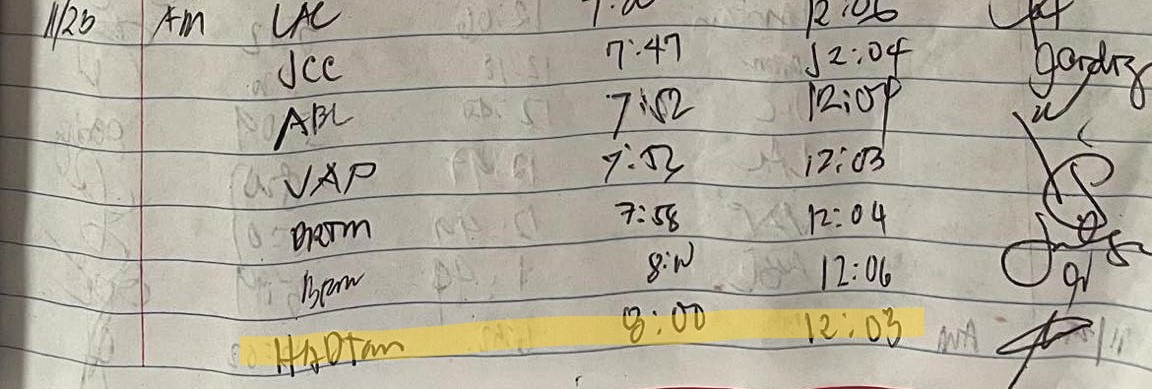 11/25 Am LAC 12:06
JCC 7:47 12:04
ABL 7:52 12:07
VAP 7:52 12:03
7:58 12:04
Bpm 12:06
HADTan 8:00 12:03